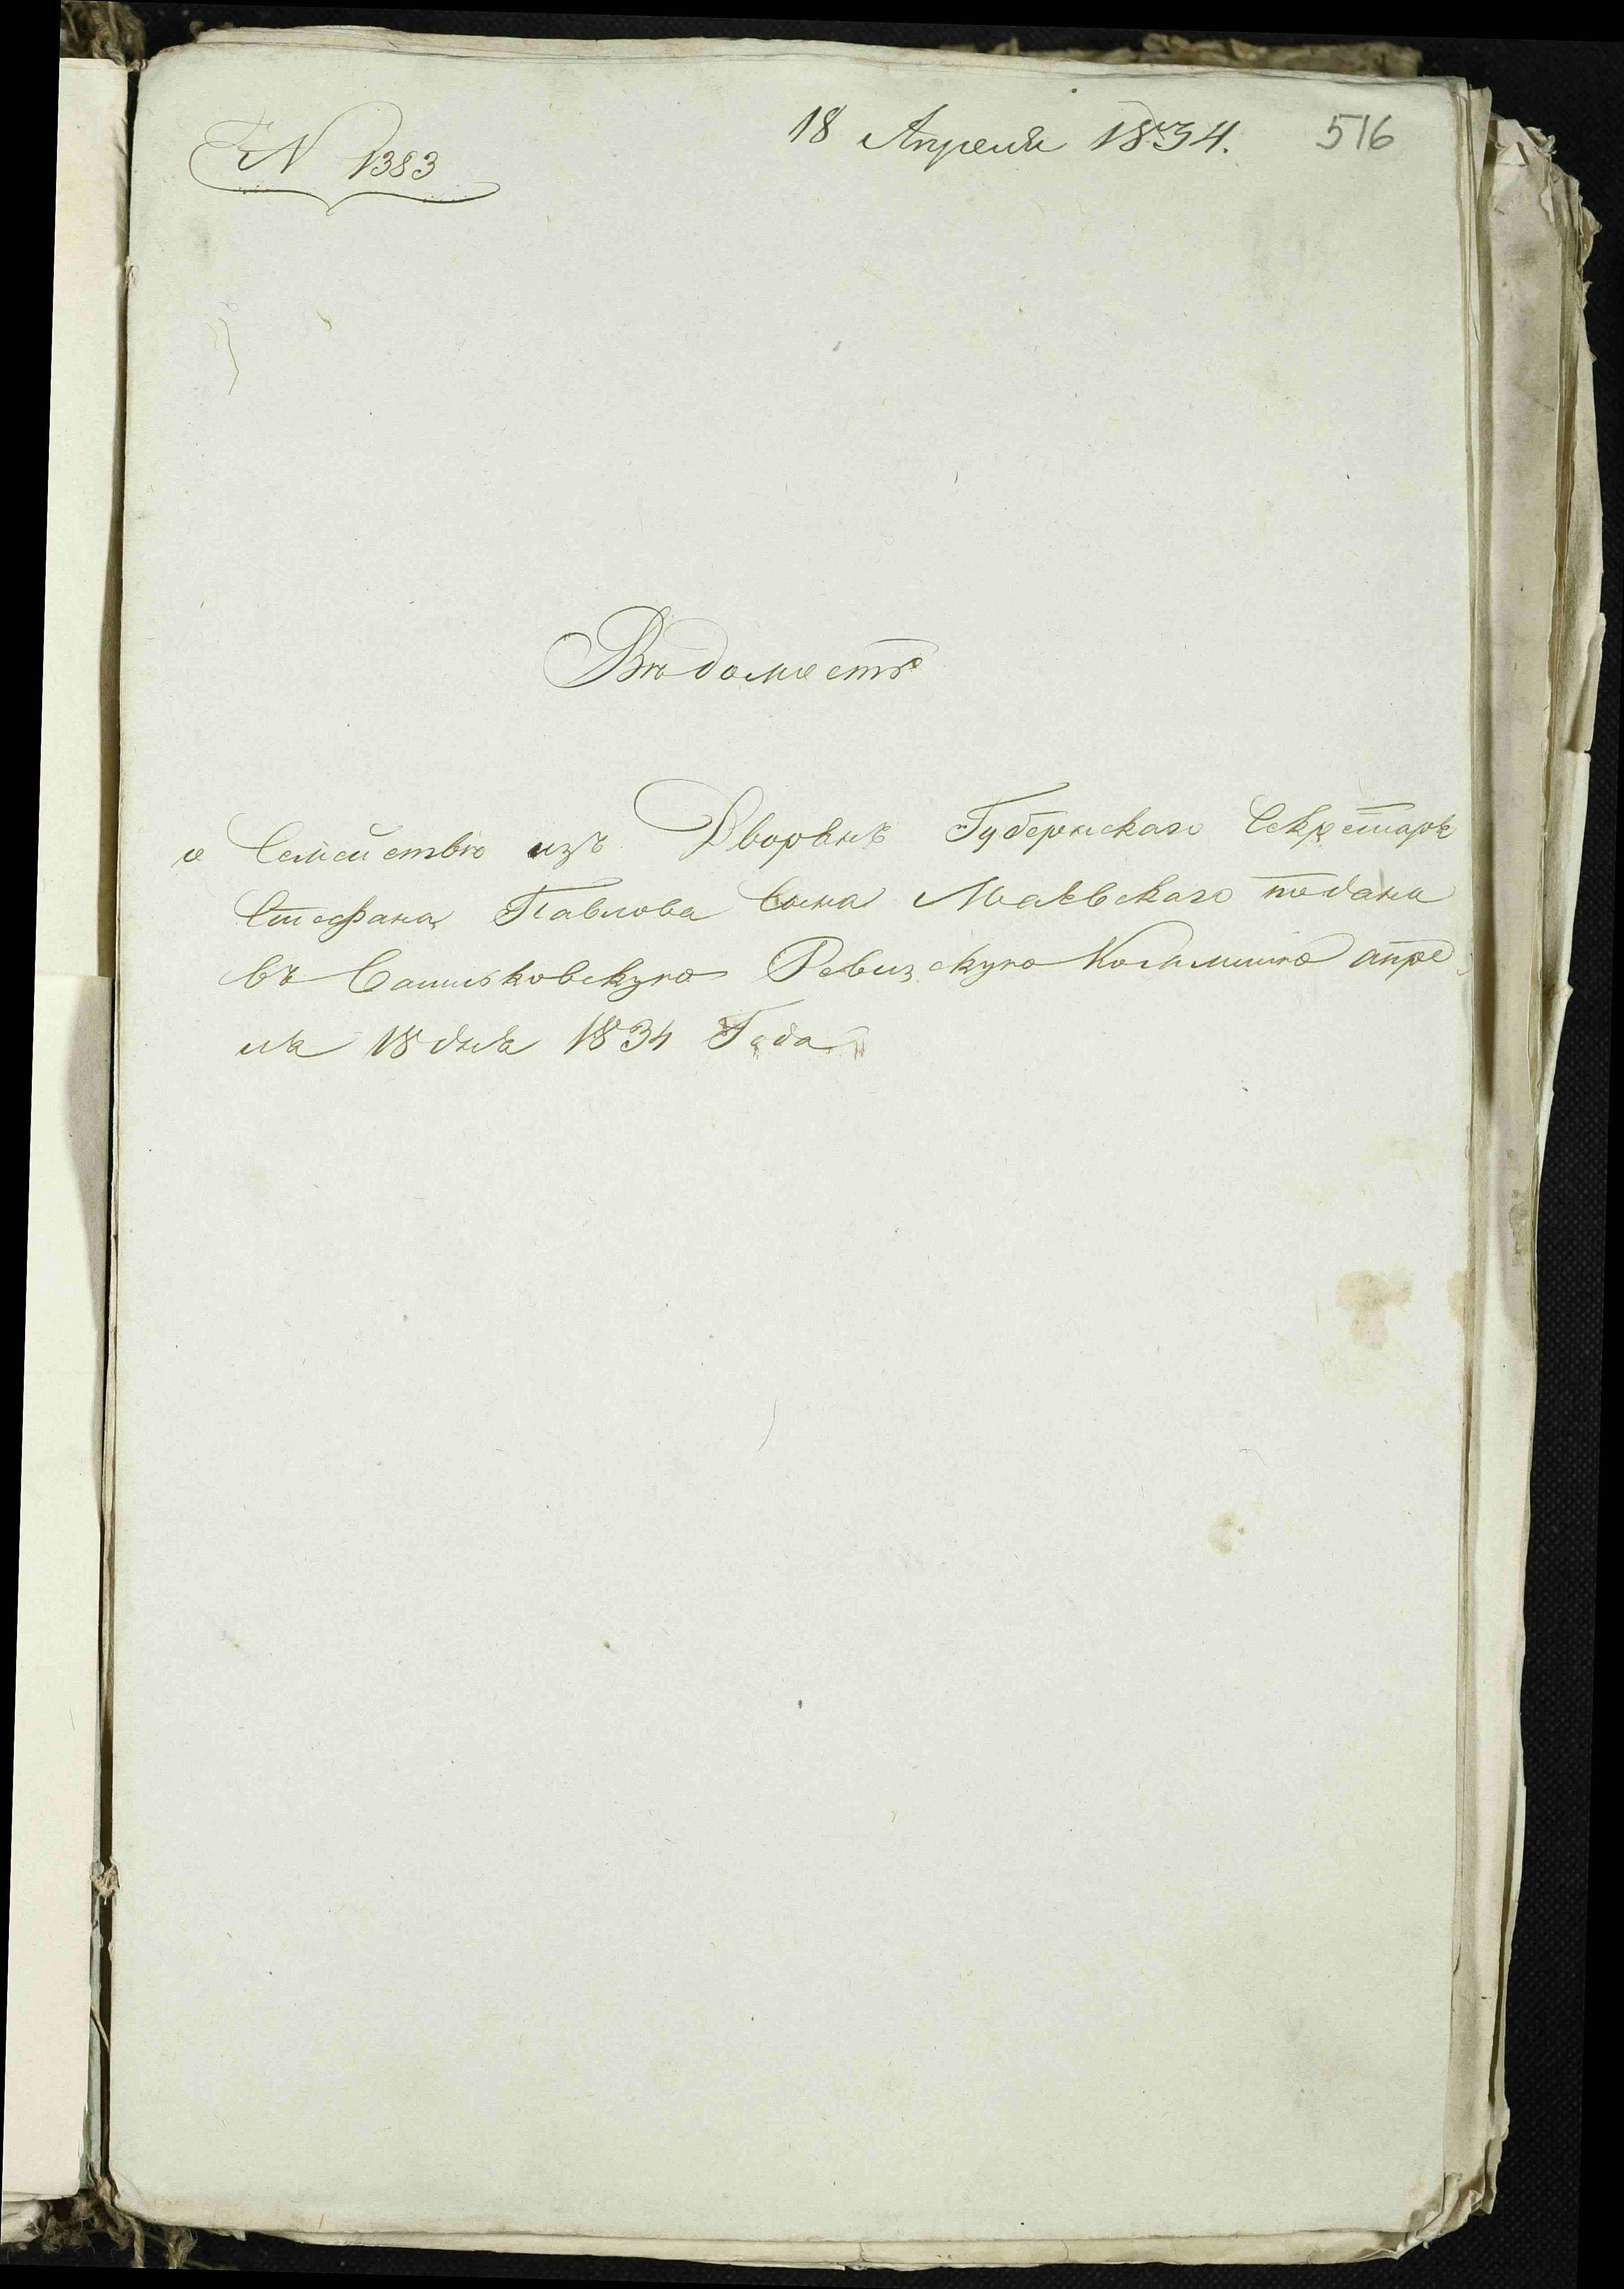 N 1383
18 Апреля 1834.
516
Вѣдомость
о Семействѣ изъ Дворянъ Губернскаго Секретаря
Стефана Павлова Сына Маевскаго подана
въ Васильковскую Ревизскую Коммисию апре
ля 18 дня 1834 Года